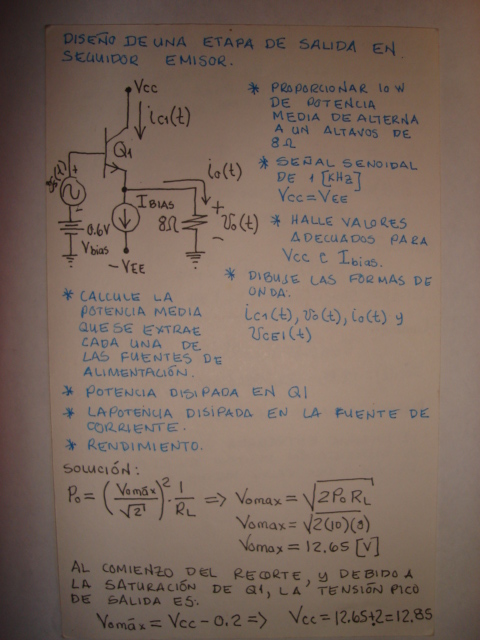 DISEÑO DE UNA ETAPA DE SALIDA EN
SEGUIDOR EMISOR.
Vcc
ic1(t)
Q1
Vs(t)
+
-
0.6V
Vbias
IBIAS
8Ω
io(t)
+
vo(t)
-
-VEE
* PROPORCIONAR 10 W
DE POTENCIA
MEDIA DE ALTERNA
A UN ALTAVOS DE
8Ω
* SEÑAL SENOIDAL
DE 1 [KHz]
Vcc = VEE
* HALLE VALORES
ADECUADOS PARA
Vcc E Ibias.
* DIBUJE LAS FORMAS DE
ONDA.
ic1(t), vo(t), io(t) y
vCE1(t)
* CALCULE LA
POTENCIA MEDIA
QUE SE EXTRAE
CADA UNA DE
LAS FUENTES DE
ALIMENTACIÓN.
* POTENCIA DISIPADA EN Q1
* LA POTENCIA DISIPADA EN LA FUENTE DE
CORRIENTE.
* RENDIMIENTO.
SOLUCIÓN:
Po = (Vomáx/√2)² · 1/RL => Vomax = √2PoRL
Vomax = √2(10)(8)
Vomax = 12.65 [V]
AL COMIENZO DEL RECORTE, Y DEBIDO A
LA SATURACIÓN DE Q1, LA TENSIÓN PICO
DE SALIDA ES:
Vomáx = Vcc - 0.2 => Vcc = 12.65+.2 = 12.85